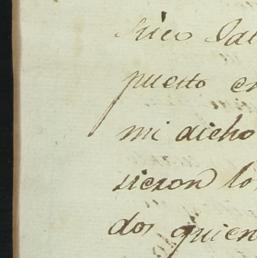 puesto en
mi dicho
sieron lo
dos quien